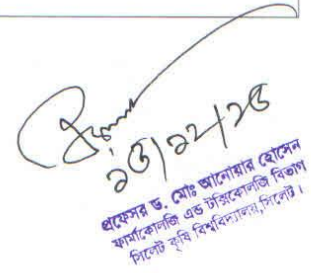 প্রফেসর ড. মোঃ আনোয়ার হোসেন
ফার্মাকোলজি এন্ড টক্সিকোলজি বিভাগ
সিলেট কৃষি বিশ্ববিদ্যালয়, সিলেট।